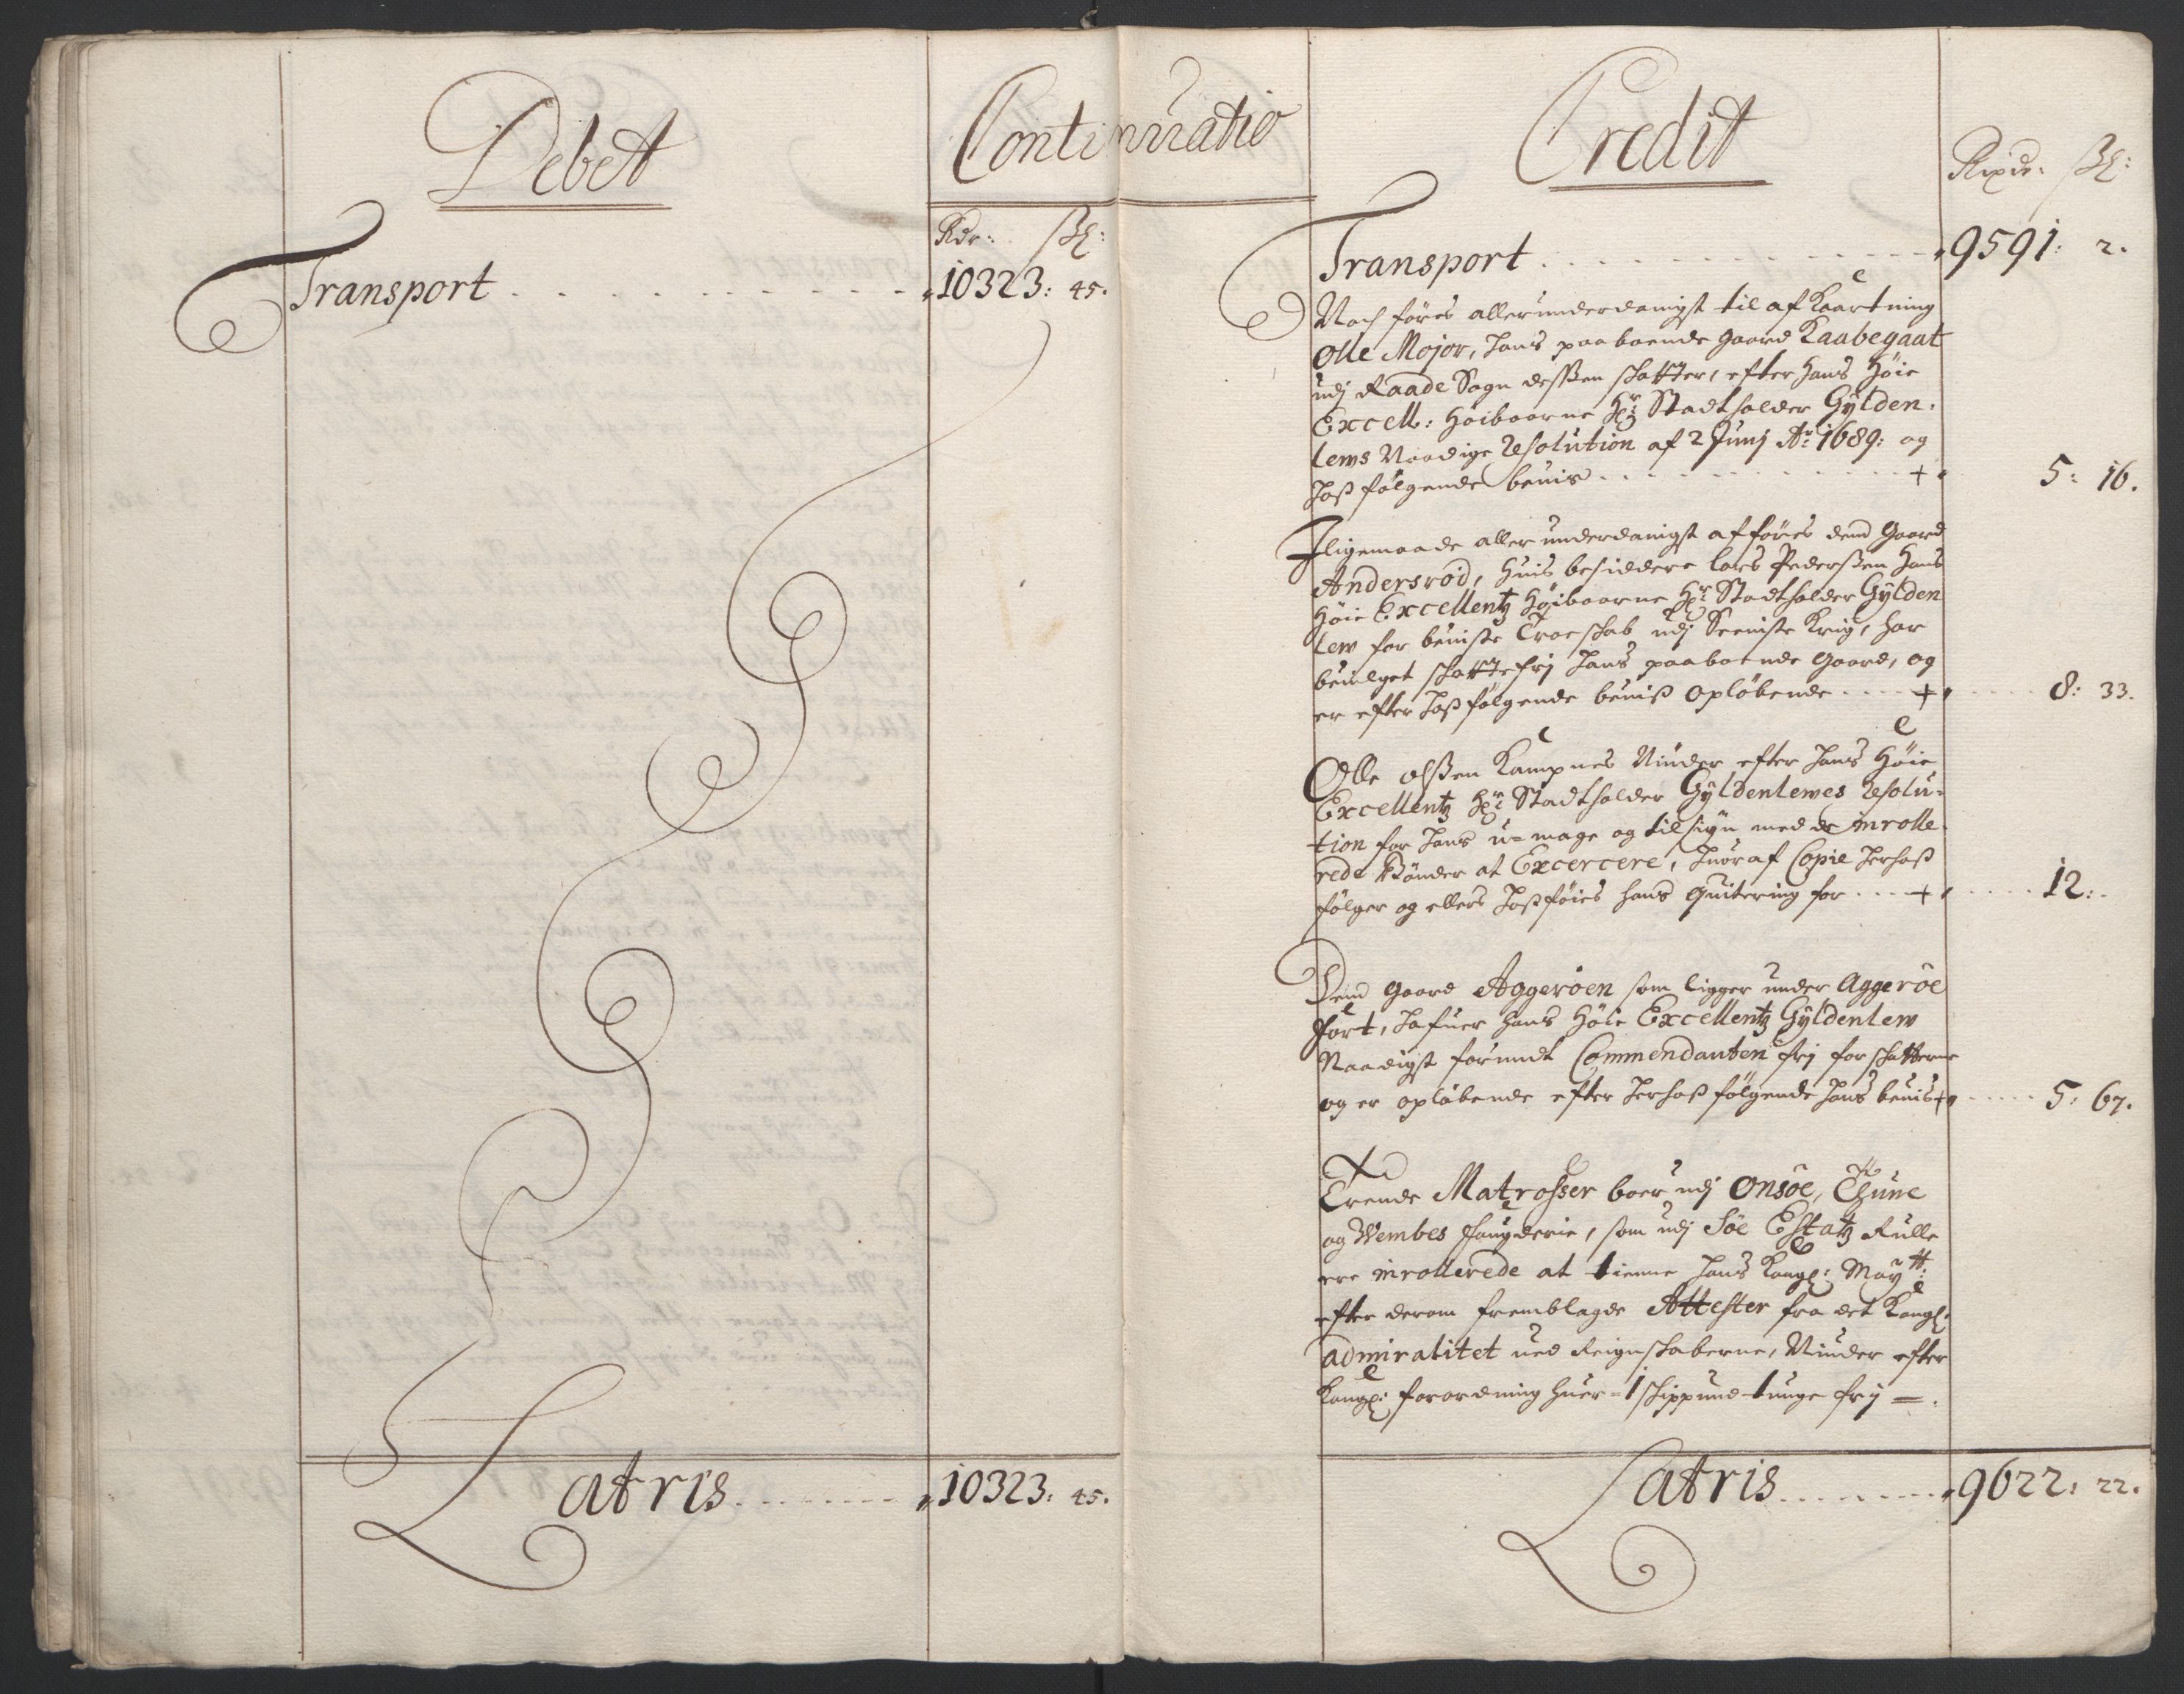 Debet
Continuatio
Rdr: ßl:
Transport 10323: 45.
Latris 10323: 45.
Credit
Rixdr: ßl:
Transport 9591: 2.
Noch føres allerunderdanigst til afKaartning
Olle Mojor, hans paaboende gaard Kaabegaat
udj Raade Sogn desßen skatter, efter hans Høie
Excell: Høibaarne Hr: Stadtholder Gÿlden-
lews Naadige Resolution af 2 Junj Ao: 1689: og
hoßfølgende beuis + 5: 16.
Jligemaade allerunderdanigst afføres dend Gaard
Andersrød, huis besiddere Lars Pederßen Hans
Høie Excellentz Høibaarne Hr: Stadtholder Gÿlden
lew for beuiste Troeskab udj Seeniste Krig, har
beuilget skattefrj hans paaboende gaard, og
er efter hoßfølgende beuiß opløbende + 8: 33.
Olle olßen Kampnes Niuder efter hans Høie
Excellentz Hr: Stadtholder Gÿldenlewes Resolu-
tion for hans u-mage og tilsiÿn med de inrolle-
rede Bønder at Excercere, huoraf Copie herhoß
følger og ellers hoßføies hans quitering for + 12: -
Dend gaard Aggerøen som ligger under Aggerøe
Fort, hafuer hans Høie Excellentz Gÿldenlew
Naadigst forundt Commendanten frj for skatterne
og er opløbende efter herhoß følgende hans beuis + 5: 67.
Trende Matroßer boer udj Onsøe, Thune
og Wembes fougderie, som udj Søe Estatz Rulle
ere inrollerede at tienne hans Kongl: Maÿtt:
efter derom fremblagde Attester fra det Kongl:
admiralitet ued Reignskaberne, Niuder efter
Kongl: forordning huer - 1 skippund tunge frj =.
Latris 9622: 22.